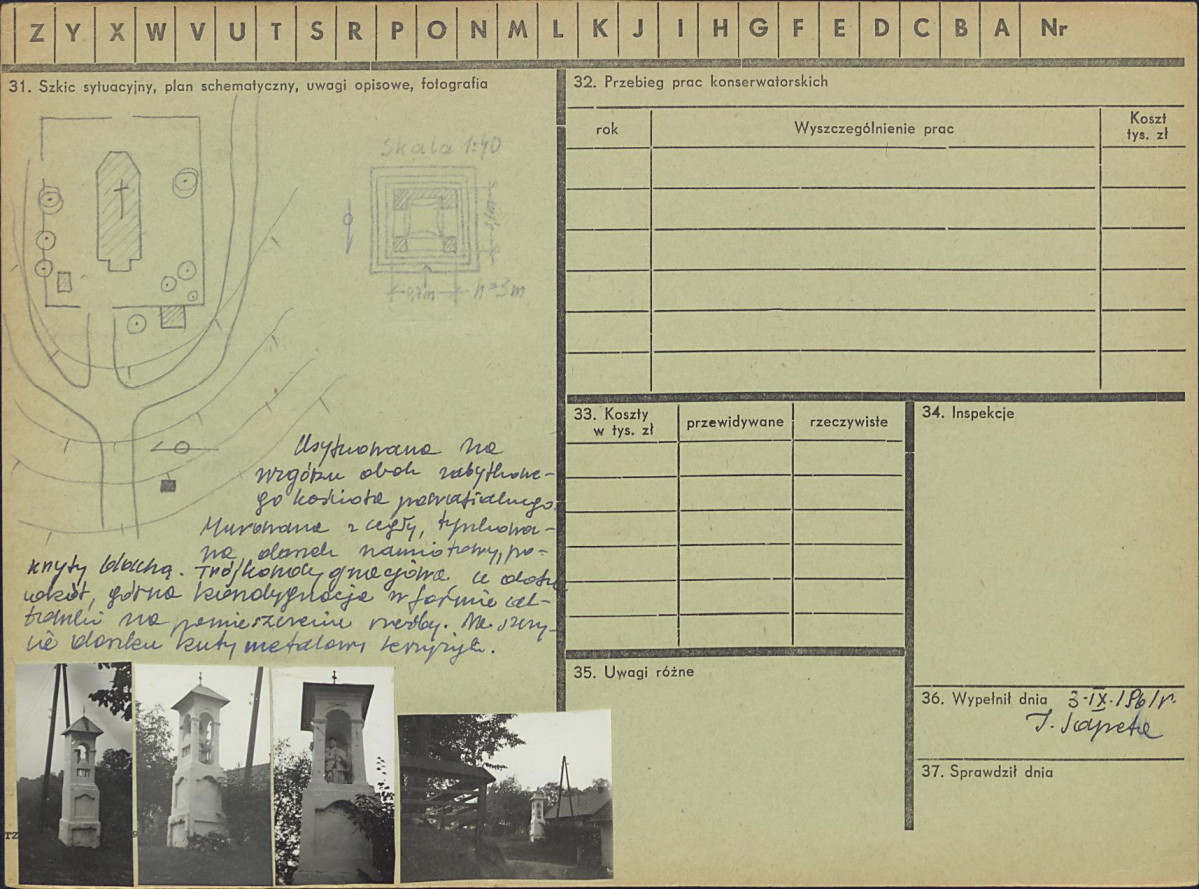 Z Y X W V U T S R P O N M L K J I H G F E D C B A Nr
31. Szkic sytuacyjny, plan schematyczny, uwagi opisowe, fotografia
Skala 1:40
h=3m
Usytuowana na
wzgórzu obok zabytkowe-
go kościoła parafialnego.
Murowana z cegły, tynkowa-
na, daszek namiotowy, po-
kryty blachą. Trójkondygnacjowa,
górna kondygnacja w formie
na pomieszczenie rzeźby. Na szczy-
cie daszku kuty metalowy krzyżyk.
32. Przebieg prac konserwatorskich
rok Wyszczególnienie prac Koszt
tys. zł
33. Koszty
w tys. zł przewidywane rzeczywiste
34. Inspekcje
35. Uwagi różne
36. Wypełnił dnia 3.IX.1961r.
37. Sprawdził dnia